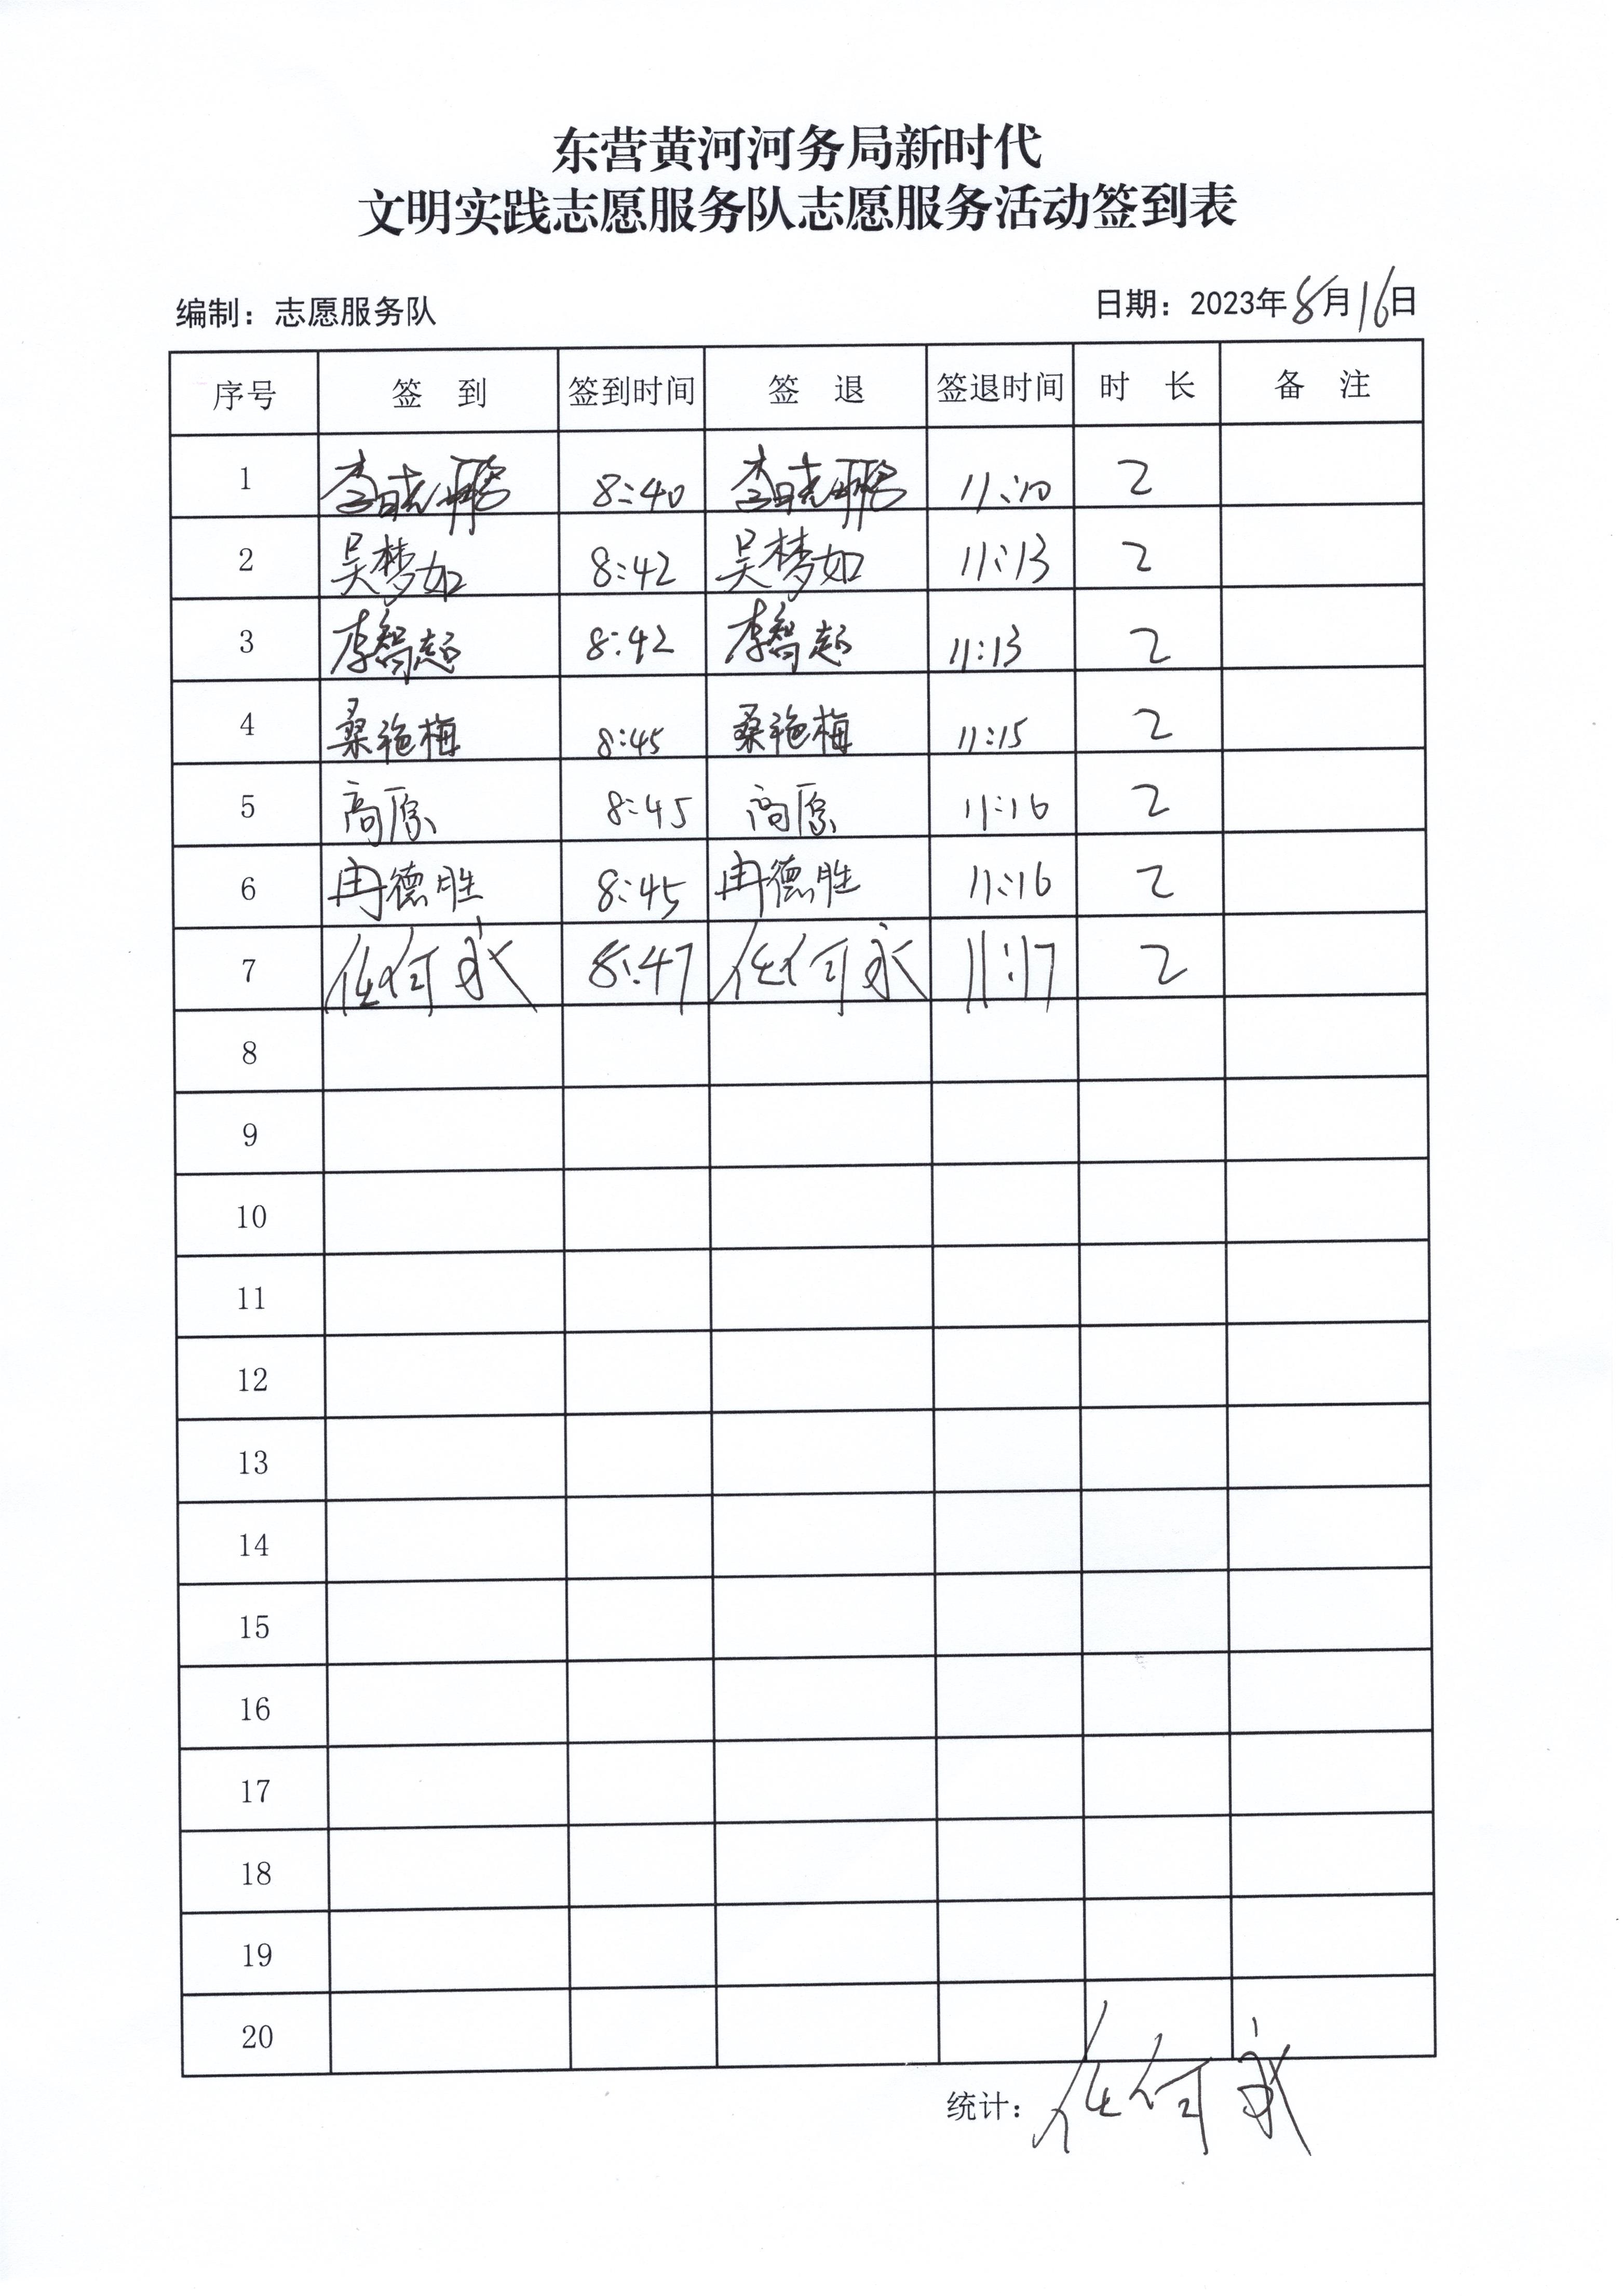 东营黄河河务局新时代
文明实践志愿服务队志愿服务活动签到表
编制：志愿服务队 日期：2023年8月16日
序号 签 到 签到时间 签 退 签退时间 时 长 备 注
1 李晓鹏 8:40 李晓鹏 11:10 2
2 吴梦如 8:42 吴梦如 11:13 2
3 李智超 8:42 李智超 11:13 2
4 桑艳梅 8:45 桑艳梅 11:15 2
5 高原 8:45 高原 11:16 2
6 冉德胜 8:45 冉德胜 11:16 2
7 任何永 8:47 任何永 11:17 2
8
9
10
11
12
13
14
15
16
17
18
19
20
统计：任何永